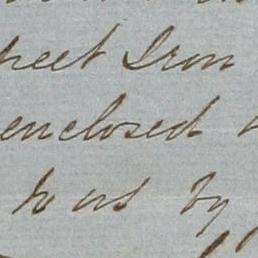 heet Iron
enclosed
to us by